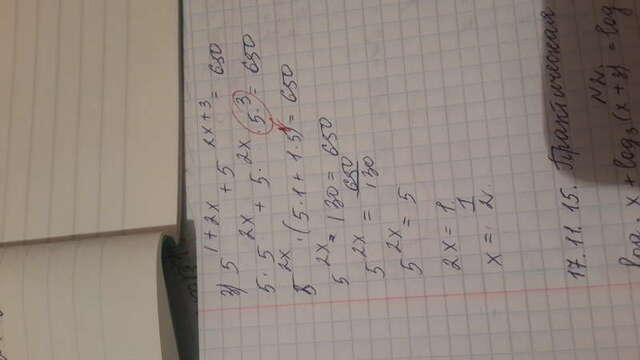 3) 5^{1+2x} + 5^{2x+3} = 650
5 · 5^{2x} + 5^{2x} · 5^{3} = 650
5^{2x} · (5·1 + 1·5) = 650
5^{2x} = 130 = 650
5^{2x} = 650/130
5^{2x} = 5
2x = 1
x = 1/2
17.11.15. Практическая
N2.
log x + log₃ (x + 3) = log